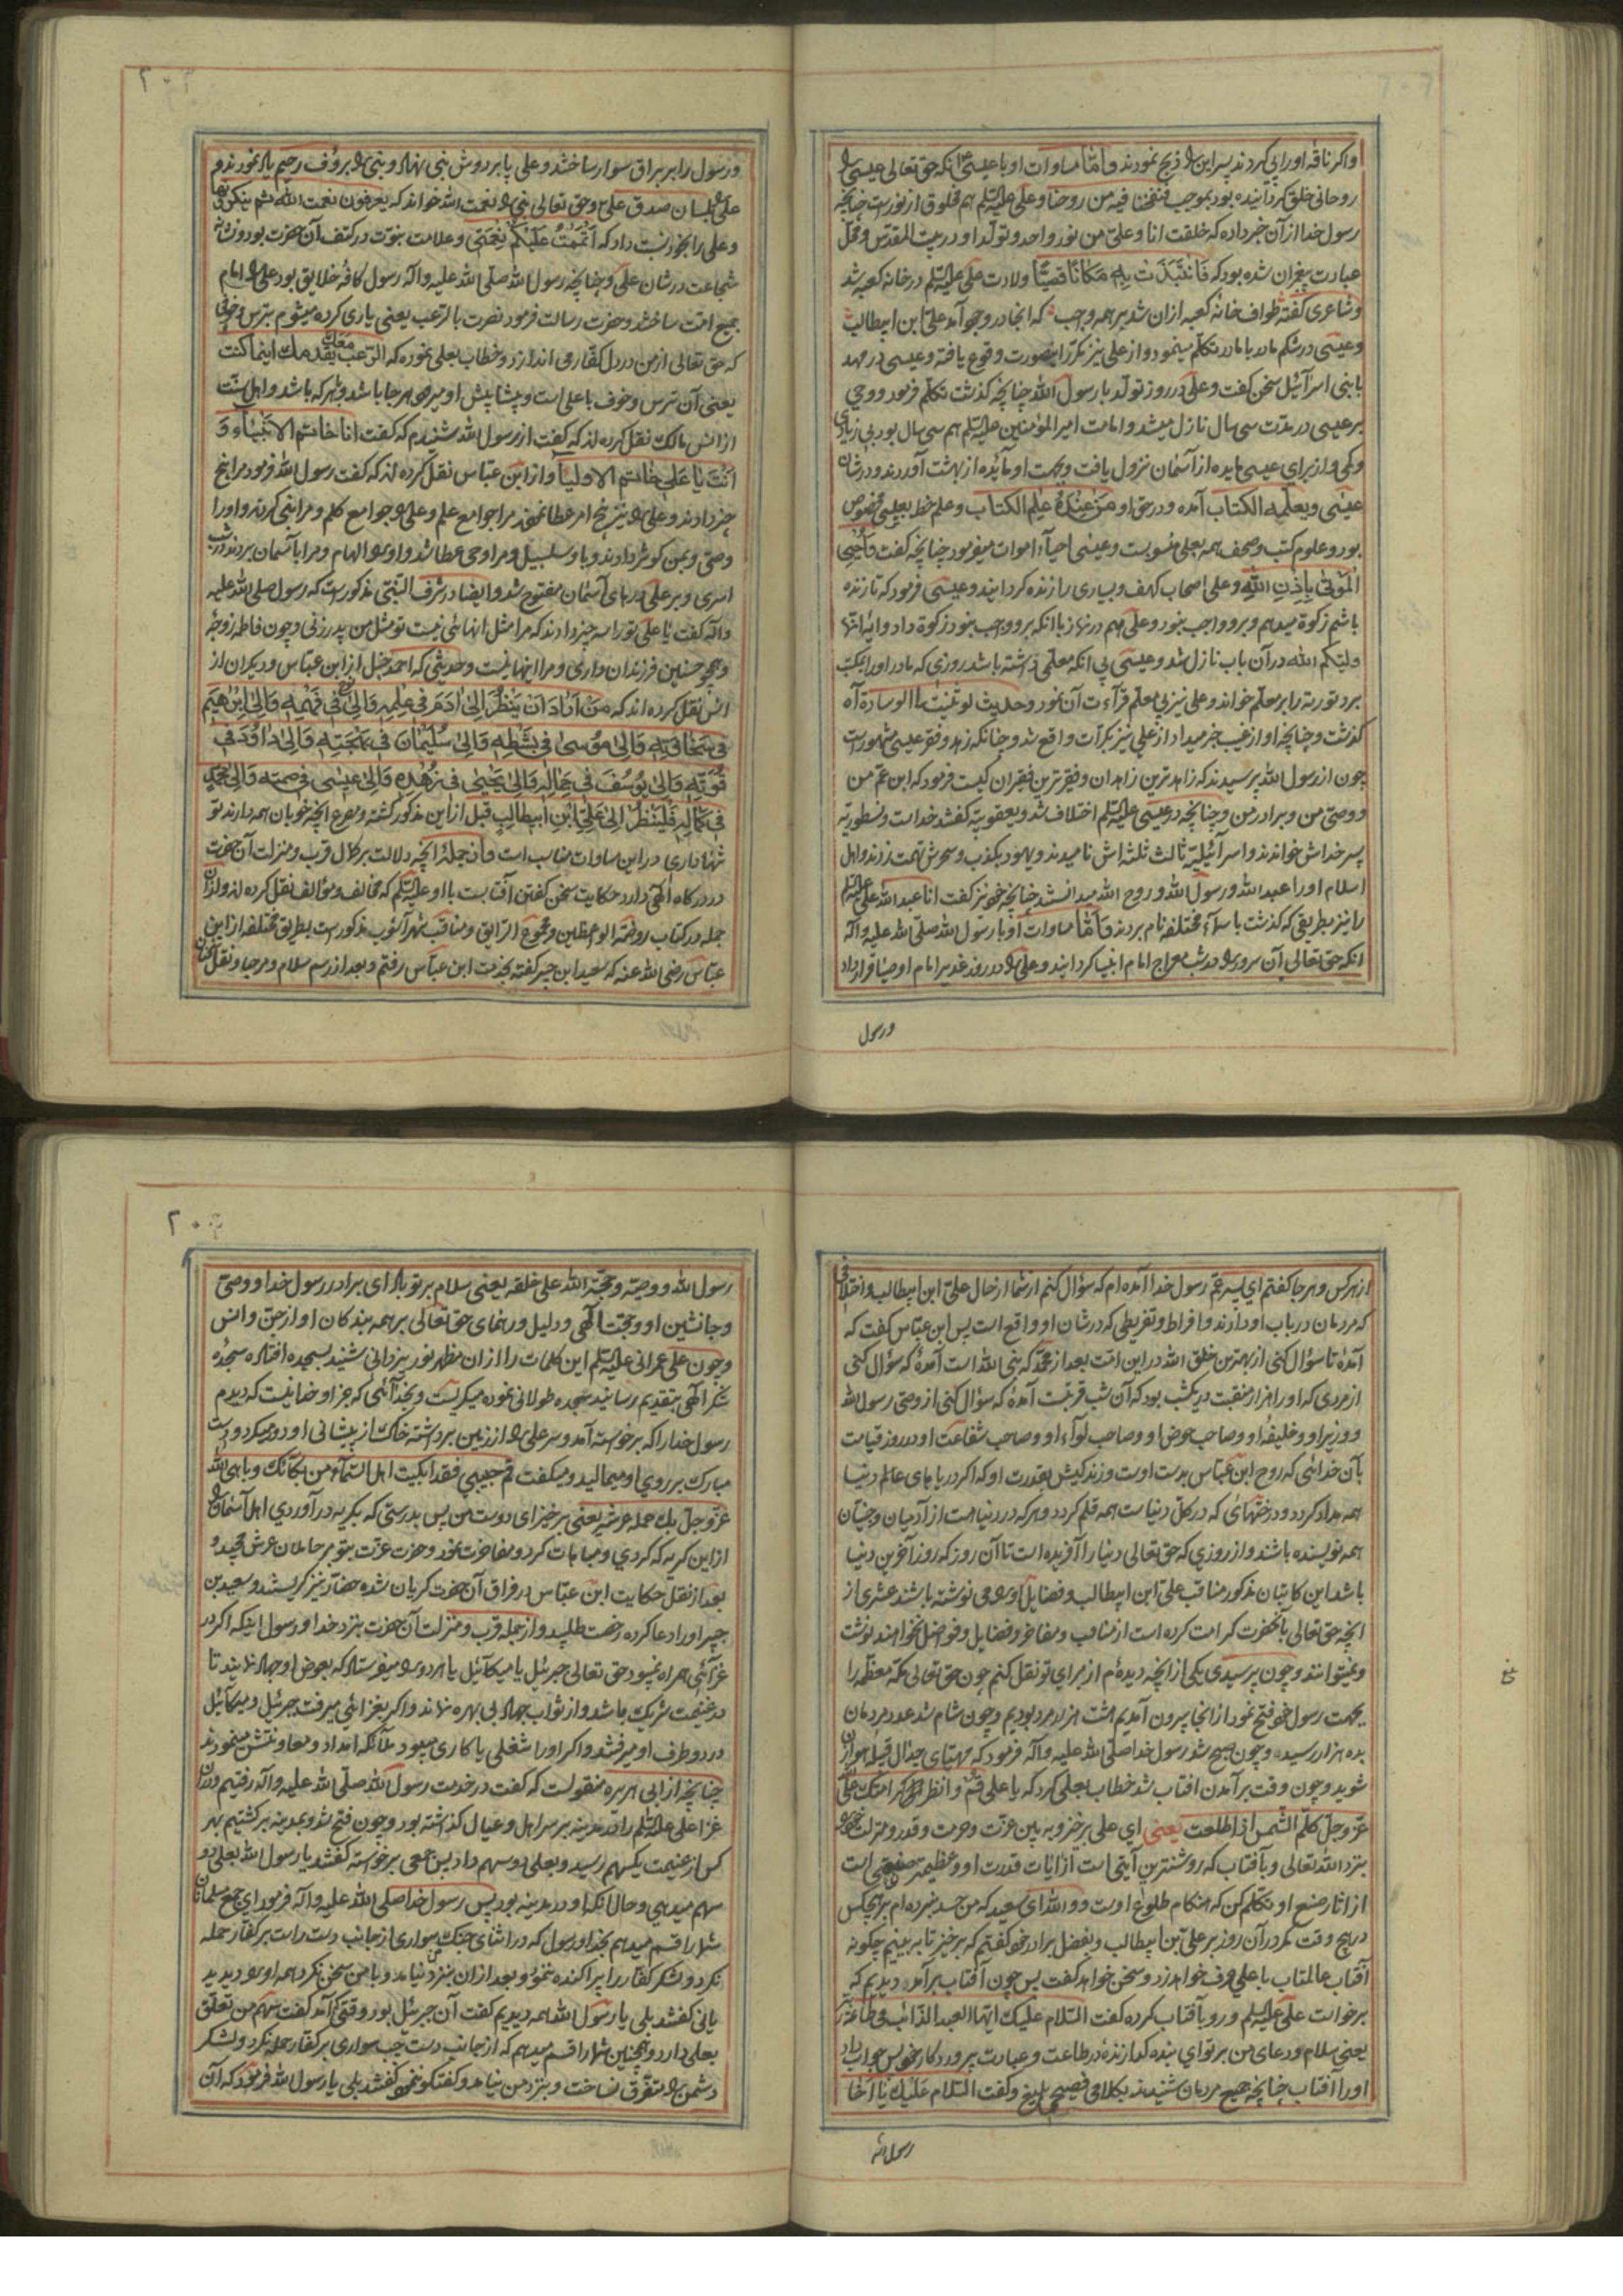 واکر ناقه او را پی کردند پسر این را ذبح نمودند و امّا مساوات او با عیسیٰ آنکه حق تعالی عیسی را
روحانی خلق کردانیده بود بموجب فنفخنا فیه من روحنا و علی علیه السلم هم مخلوق از نورست چنانچه
رسول خدا از آن خبر داده که خلقت انا و علیّ من نور واحد و تولّد او در بیت المقدّس و محلّ
عبادت پیغمبران شده بود که فَانْتَبَذَتْ بِهِ مَکَانًا قَصِیًّا ولادت علی علیه السلم در خانه کعبه شد
و شاعری کفته طواف خانه کعبه از ان شد بر همه واجب که انجا در وجود آمد علی ابن ابیطالب
و عیسی در شکم مادر با مادر تکلّم مینمود و از علی نیز مکرّر اینصورت وقوع یافته و عیسی در مهد
با بنی اسرآئیل سخن کفت و علی در روز تولّد با رسول الله چنانچه کذشت تکلّم فرمود و وحی
بر عیسی در مدّت سی سال نازل میشد و امامت امیر المؤمنین علیه السلم هم سی سال بود بی زیادی
و کمی و از برای عیسی مایده از آسمان نزول یافت و بجهت او مآئده از بهشت آوردند و در شان
عیسی و یعلّمه الکتاب آمده و در حق او مَنْ عِنْدَهُ عِلْمُ الکتاب و علم خط بعیسی مخصوص
بود و علوم کتب و صحف همه بعلی منسوبست و عیسی احیآء اموات میفرمود چنانچه کفت وَاُحْیِی
الْمَوْتیٰ بِاِذْنِ اللّٰهِ و علی اصحاب کهف و بسیاری را زنده کردانید و عیسی فرمود که تا زنده
باشم زکوة میدهم و برو واجب نبود و علی هم در نماز با انکه برو واجب نبود زکوة داد و ایه انّما
ولیّکم الله در آن باب نازل شد و عیسی بی انکه معلّمی داشته باشد روزی که مادر او را بمکتب
برد توریة را بر معلّم خواند و علی نیز بی معلّم قرآءت آن نمود و حدیث لو ثنیت لی الوسادة آه
کذشت و چنانچه او از غیب خبر میداد از علی نیز بکرّات واقع شد و چنانکه زهد و فقر عیسی مشهورست
چون از رسول الله پرسیدند که زاهدترین زاهدان و فقیرترین فقیران کیست فرمود که ابن عمّ من
و وصیّ من و برادر من و چنانچه در عیسی علیه السلم اختلاف شد و یعقوبیّه کفتند خداست و نسطوریّه
پسر خداش خواندند و اسرآئیلیّه ثالث ثلثه اش نامیدند و یهود بکذب و سحرش تهمت زدند و اهل
اسلام او را عبد الله و رسول الله و روح الله میدانستند چنانچه خود نیز کفت انا عبد الله علی علیه السلم
را نیز بطریقی که کذشت باسمآء مختلفه نام بردند و امّا مساوات او با رسول الله صلّی الله علیه و اله
انکه حق تعالی آن سرور را در شب معراج امام انبیا کردانید و علی را در روز غدیر امام اوصیا قرار داد
و رسول
و رسول را بر براق سوار ساختند و علی پا بر دوش نبی نهاد و نبی را برؤف رحیم یاد نمودند و
علی را بلسان صدق علیّ و حق تعالی نبی را نعمت الله خواند که یعرفون نعمت الله ثم ینکرونها
و علی را بخود نسبت داد که اَتْمَمْتُ عَلَیْکُمْ نِعْمَتِی و علامت نبوّت در کتف آن حضرت بود و نشانه
شجاعت در شان علی و چنانچه رسول الله صلّی الله علیه و اله رسول کافّه خلایق بود علی را امام
جمیع امّت ساختند و حضرت رسالت فرمود نصرت بالرّعب یعنی یاری کرده میشوم بترس و خوفی
که حق تعالی از من در دل کفّار می اندازد و خطاب بعلی نموده که الرّعب معک یقدمک اینما کنت
یعنی آن ترس و خوف با علی است و پیشاپیش او میرود هر جا باشد و بهر که باشد و اهل سنّت
از انس مالک نقل کرده اند که کفت از رسول الله شنیدم که کفت انا خاتم الانبیاء وَ
اَنْتَ یَا عَلِیّ خَاتم الاولیا و از ابن عبّاس نقل کرده اند که کفت رسول الله فرمود مرا پنج
چیز دادند و علی را نیز پنج امر عطا نمودند مرا جوامع علم و علی را جوامع کلم و مرا نبی کردند و او را
وصّی و بمن کوثر دادند و باو سلسبیل و مرا وحی عطا شد و او را الهام و مرا بآسمان بردند در شب
اسری و بر علی درهای آسمان مفتوح شد و ایضا در شرف النّبی مذکورست که رسول صلی الله علیه
و اله کفت یا علی تو را سه چیز دادند که مرا مثل انها نیست تو مثل من پدر زنی و چون فاطمه زوجه
و همچو حسنین فرزندان داری و مرا اینها نیست و حدیثی که احمد حنبل از ابن عبّاس و دیکران از
انس نقل کرده اند که مَنْ اَرَادَ اَنْ یَنْظُرَ اِلیٰ اٰدَمَ فِی عِلْمِهِ وَاِلیٰ نوح فِی فَهْمِهِ وَاِلیٰ اِبْرٰهِیمَ
فِی سَخَاوَتِهِ وَاِلیٰ مُوسیٰ فِی بَطْشِهِ وَاِلیٰ سُلَیْمٰانَ فِی بَهْجَتِهِ وَاِلیٰ دٰاوُدَ فِی
قُوَّتِهِ وَاِلیٰ یُوسُفَ فِی جَمٰالِهِ وَاِلیٰ یَحْییٰ فِی زُهْدِهِ وَاِلیٰ عِیسٰی فِی صمته وَاِلیٰ مُحَمَّدٍ
فِی کَمٰالِهِ فَلْیَنْظُرْ اِلیٰ عَلِیِّ ابْنِ اَبِیطٰالِبٍ قبل از این مذکور کشته و مصرع انچه خوبان همه دارند تو
تنها داری در این مساوات مناسب است و از جمله انچه دلالت بر کمال قرب و منزلت آن حضرت
در درکاه الهی دارد حکایت سخن کفتن آفتابست با او علیه السلم که مخالف و مؤالف نقل کرده اند و از ان
جمله در کتاب روضة الواعظین و مجموع الرّایق و مناقب شهر آشوب مذکورست بطریق مختلفه از ابن
عبّاس رضی الله عنه که سعید ابن جبیر کفته بخدمت ابن عبّاس رفتم و بعد از رسم سلام و مرحبا و نقل سخنان
از هر کس و هر جا کفتم ای پسر عمّ رسول خدا آمده ام که سؤال کنم از شما از حال علیّ ابن ابیطالب و اختلافی
که مردمان در باب او دارند و افراط و تفریطی که در شان او واقع است پس ابن عبّاس کفت که
آمدهٔ تا سؤال کنی از بهترین خلق الله در این امّت بعد از محمّد که نبی الله است آمدهٔ که سؤال کنی
از مردی که او را هزار منقبت در یکشب بود که آن شب قربت آمدهٔ که سؤال کنی از وصّی رسول الله
و وزیر او و خلیفه او و صاحب حوض او و صاحب لوآء او و صاحب شفاعت او در روز قیامت
بآن خدائی که روح ابن عبّاس بدست اوست و زندکیش بقدرت او که اکر دریاهای عالم دنیا
همه مداد کردد و درختهای که در کلّ دنیاست همه قلم کردد و هر که در دنیا هست از آدمیان و جنّیان
همه نویسنده باشند و از روزی که حق تعالی دنیا را آفریده است تا آن روز که روز آخرین دنیا
باشد این کاتبان مذکور مناقب علیّ ابن ابیطالب و فضایل او را می نوشته باشند عشری از
انچه حق تعالی بآنحضرت کرامت کرده است از مناقب و مفاخر و فضایل و فواضل نخواهند نوشت
و نمیتوانند و چون پرسیدی یکی از انچه دیده ام از برای تو نقل کنم چون حق تعالی مکّه معظّمه را
بجهت رسول خود فتح نمود از انجا بیرون آمدیم هشت هزار مرد بودیم و چون شام شد عدد مردمان
بده هزار رسیده و چون صبح شد رسول خدا صلّی الله علیه و اله فرمود که مهیّای جدال قبیله هوازن
شوید و چون وقت بر آمدن افتاب شد خطاب بعلی کرد که یا علی قم و انظر کرامتک علی الله
عزّ و جلّ کلّم الشّمس اذا طلعت یعنی ای علی برخیز و به بین عزّت و حرمت و قدر و منزلت خود را
بنزد الله تعالی و بآفتاب که روشنترین آیتی است از ایات قدرت او و عظیمتر صنعی است
از اثار صنع او تکلّم کن که هنکام طلوع اوست و والله ای سعید که من حسد نبرده ام بر هیچکس
در هیچ وقت مکر در آن روز بر علیّ بن ابیطالب و بفضل برادر خود کفتم که برخیز تا به بینیم چکونه
آفتاب عالمتاب با علی حرف خواهد زد و سخن خواهد کفت پس چون آفتاب بر آمد دیدیم که
برخاست علی علیه السلم و رو بآفتاب کرده کفت السّلام علیک ایّها العبد الدّائب فی طاعة ربّه
یعنی سلام و دعای من بر تو ای بنده کدازندهٔ در طاعت و عبادت پروردکار خود پس جواب داد
او را آفتاب چنانچه جمیع مردمان شنیدند بکلامی فصیح بلیغ و کفت السّلام عَلَیْکَ یٰا اَخٰا
رسول الله
رسول الله و وصیّه و حجّة الله علی خلقه یعنی سلام بر تو باد ای برادر رسول خدا و وصّی
و جانشین او و حجّت الهی و دلیل و رهنمای حق تعالی بر همه بندکان او از جنّ و انس
و چون علی عمرانی علیه السلم این کلمات را از ان مظهر نور یزدانی شنید بسجده افتاد و سجدهٔ
شکر الهی بتقدیم رسانید سجده طولانی نموده میکریست و بخدآئی که جز او خدا نیست که دیدم
رسول خدا را که برخاسته آمد و سر علی را از زمین برداشته خاک از پیشانی او دور میکرد و دست
مبارک بر روی او میمالید و میکفت قم حبیبی فقد ابکیت اهل السّمآء من بکائک و باهی الله
عزّ و جلّ بک حملة عرشه یعنی برخیز ای دوست من پس بدرستی که بکریه در آوردی اهل آسمان را
از این کریه که کردی و مباهات کرد و مفاخرت نمود حضرت عزّت بتو بر حاملان عرش مجید و
بعد از نقل حکایت ابن عبّاس در فراق آن حضرت کریان شده حضار نیز کریستند و سعید بن
جبیر او را دعا کرده رخصت طلبید و از جمله قرب و منزلت آن حضرت بنزد خدا و رسول اینکه اکر در
غزآئی همراه نمیبود حق تعالی جبرئیل یا میکآئیل یا هر دو را میفرستاد که بعوض او جهاد نمایند تا
در غنیمت شریک باشد و از ثواب جهاد بی بهره نماند و اکر بغزائی میرفت جبرئیل و میکآئیل
در دو طرف او میرفتند و اکر او را شغلی یا کاری میبود ملآئکه امداد و معاونتش مینمودند
چنانچه از ابی هریره منقولست که کفت در خدمت رسول الله صلّی الله علیه و اله رفتیم و در ان
غزا علی علیه السلم را در مدینه بر سر اهل و عیال کذاشته بود و چون فتح شد و بمدینه برکشتیم بهر
کس از غنیمت یکسهم رسید و بعلی دو سهم داد پس جمعی برخاسته کفتند یا رسول الله بعلی دو
سهم میدهی و حال انکه او در مدینه بود پس رسول خدا صلّی الله علیه و اله فرمود ای جمع مسلمانان
شما را قسم میدهم بخدا و رسول که در اثنای جنک سواری از جانب دست راست بر کفّار حمله
نکرد و لشکر کفّار را پراکنده ننمود و بعد از ان بنزد من نیامد و با من سخن نکرد همه او را دیدید
یا نی کفتند بلی یا رسول الله همه دیدیم کفت آن جبرئیل بود وقتی که آمد کفت سهم من تعلّق
بعلی دارد و همچنین شما را قسم میدهم که از جانب دست چپ سواری بر کفّار حمله نکرد و لشکر
دشمن را متفرّق نساخت و بنزد من نیامد و کفتکو ننمود کفتند بلی یا رسول الله فرمود که آن